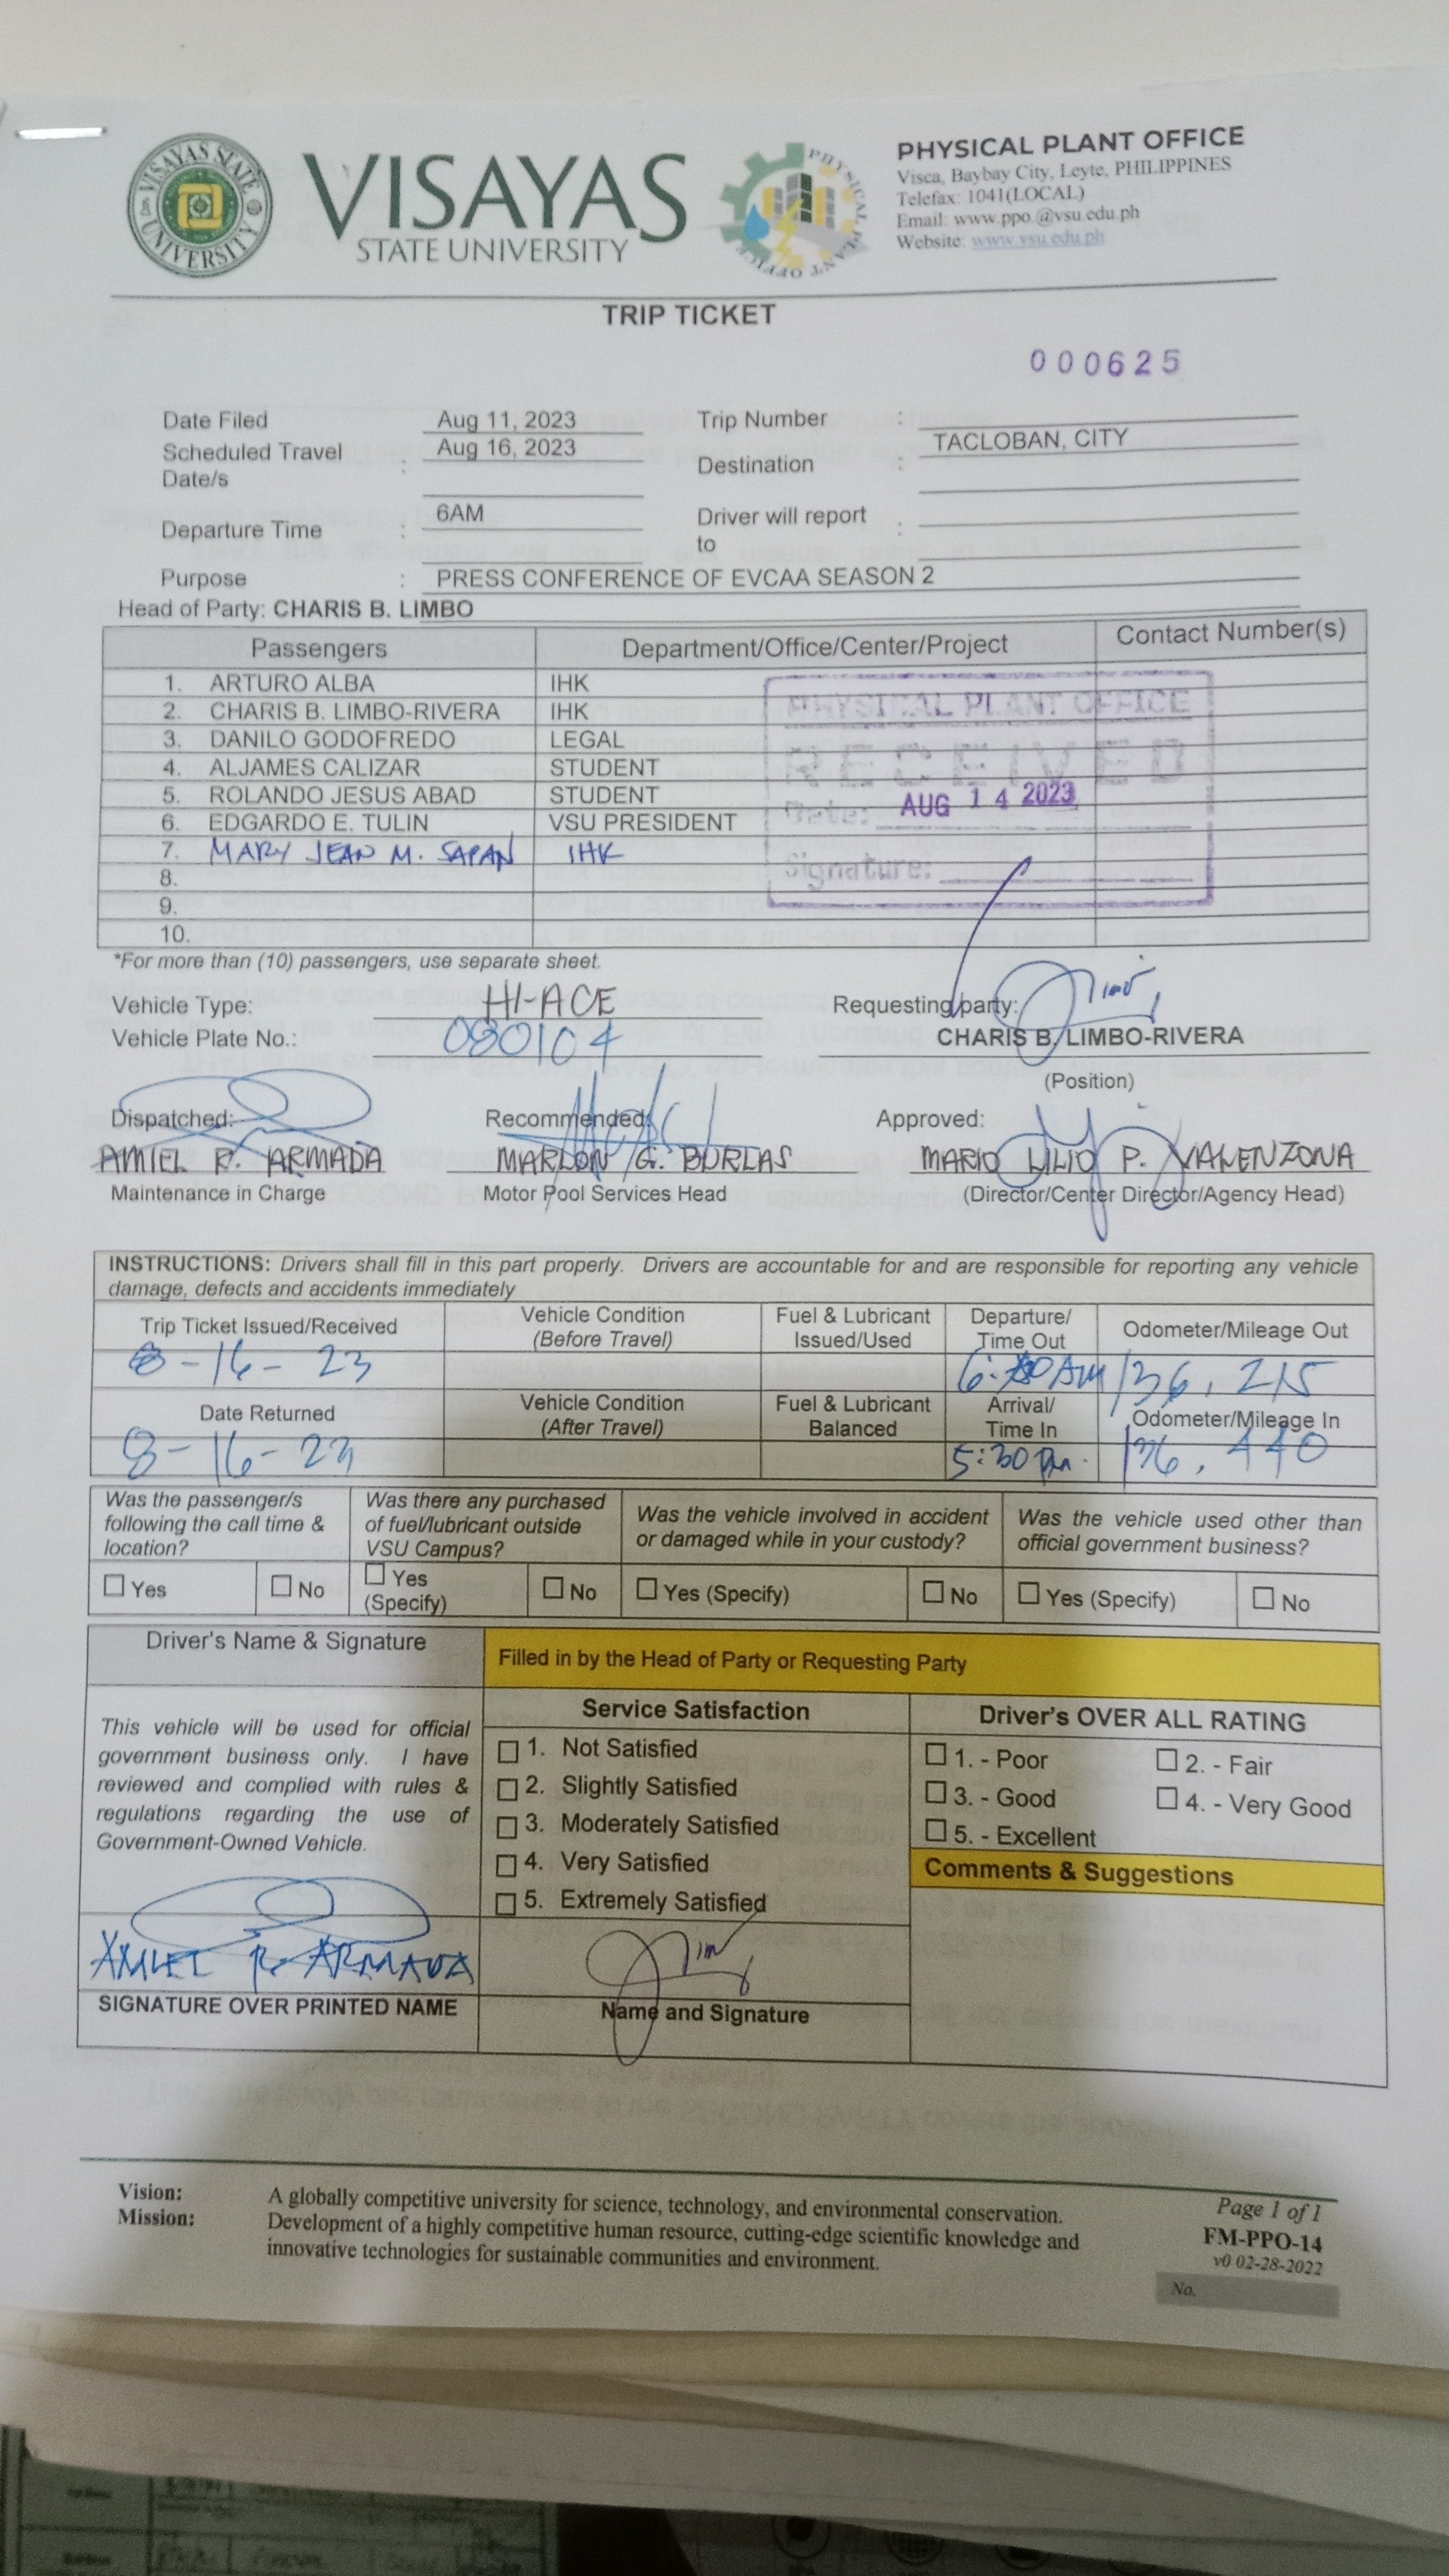 VISAYAS STATE UNIVERSITY
VISAYAS
STATE UNIVERSITY
PHYSICAL PLANT OFFICE
PHYSICAL PLANT OFFICE
Visca, Baybay City, Leyte, PHILIPPINES
Telefax: 1041(LOCAL)
Email: www.ppo.@vsu.edu.ph
Website: www.vsu.edu.ph
TRIP TICKET
000625
Date Filed Aug 11, 2023 Trip Number :
Scheduled Travel Date/s : Aug 16, 2023 Destination : TACLOBAN, CITY
Departure Time : 6AM Driver will report to :
Purpose : PRESS CONFERENCE OF EVCAA SEASON 2
Head of Party: CHARIS B. LIMBO
Passengers Department/Office/Center/Project Contact Number(s)
1. ARTURO ALBA IHK
2. CHARIS B. LIMBO-RIVERA IHK
3. DANILO GODOFREDO LEGAL
4. ALJAMES CALIZAR STUDENT
5. ROLANDO JESUS ABAD STUDENT
6. EDGARDO E. TULIN VSU PRESIDENT
7. MARY JEAN M. SAPAN IHK
8.
9.
10.
PHYSICAL PLANT OFFICE
RECEIVED
Date: AUG 14 2023
Signature:
*For more than (10) passengers, use separate sheet.
Vehicle Type: HI-ACE Requesting party:
Vehicle Plate No.: 080104 CHARIS B. LIMBO-RIVERA
(Position)
Dispatched: Recommended: Approved:
AMIEL R. ARMADA MARLON G. BURLAS MARIO LILIO P. VALENZONA
Maintenance in Charge Motor Pool Services Head (Director/Center Director/Agency Head)
INSTRUCTIONS: Drivers shall fill in this part properly. Drivers are accountable for and are responsible for reporting any vehicle
damage, defects and accidents immediately
Trip Ticket Issued/Received Vehicle Condition (Before Travel) Fuel & Lubricant Issued/Used Departure/ Time Out Odometer/Mileage Out
8-16-23 136,215
Date Returned Vehicle Condition (After Travel) Fuel & Lubricant Balanced Arrival/ Time In Odometer/Mileage In
8-16-23 5:30 pm. 136,440
Was the passenger/s following the call time & location? Was there any purchased of fuel/lubricant outside VSU Campus? Was the vehicle involved in accident or damaged while in your custody? Was the vehicle used other than official government business?
☐ Yes ☐ No ☐ Yes (Specify) ☐ No ☐ Yes (Specify) ☐ No ☐ Yes (Specify) ☐ No
Driver's Name & Signature Filled in by the Head of Party or Requesting Party
This vehicle will be used for official
government business only. I have
reviewed and complied with rules &
regulations regarding the use of
Government-Owned Vehicle.
AMIEL R. ARMADA
SIGNATURE OVER PRINTED NAME
Service Satisfaction
☐ 1. Not Satisfied
☐ 2. Slightly Satisfied
☐ 3. Moderately Satisfied
☐ 4. Very Satisfied
☐ 5. Extremely Satisfied
Name and Signature
Driver's OVER ALL RATING
☐ 1. - Poor ☐ 2. - Fair
☐ 3. - Good ☐ 4. - Very Good
☐ 5. - Excellent
Comments & Suggestions
Vision: A globally competitive university for science, technology, and environmental conservation.
Mission: Development of a highly competitive human resource, cutting-edge scientific knowledge and
innovative technologies for sustainable communities and environment.
Page 1 of 1
FM-PPO-14
v0 02-28-2022
No.